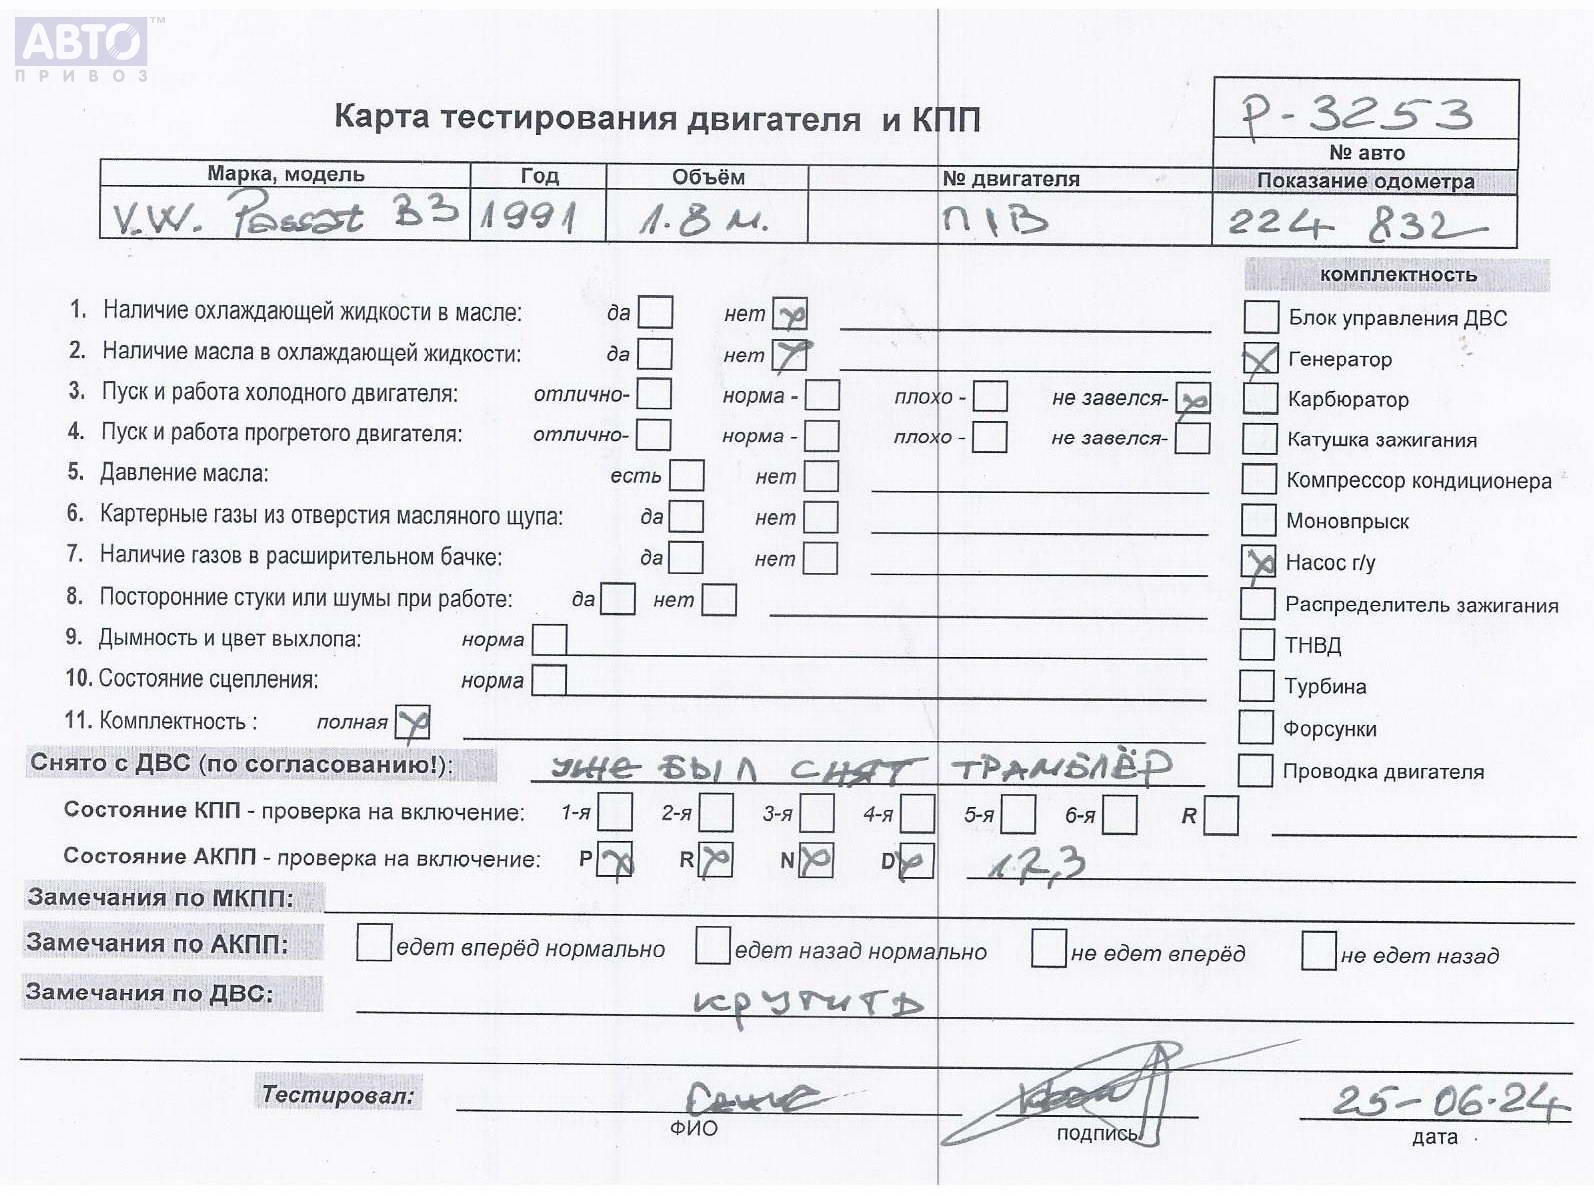 АВТО™
ПРИВОЗ
Карта тестирования двигателя и КПП
P-3253
№ авто
Марка, модель Год Объём № двигателя Показание одометра
V.W. Passat B3 1991 1.8 м. П1В 224 832
комплектность
1. Наличие охлаждающей жидкости в масле: да нет
Блок управления ДВС
2. Наличие масла в охлаждающей жидкости: да нет
Генератор
3. Пуск и работа холодного двигателя: отлично- норма - плохо - не завелся-
Карбюратор
4. Пуск и работа прогретого двигателя: отлично- норма - плохо - не завелся-
Катушка зажигания
5. Давление масла: есть нет
Компрессор кондиционера
6. Картерные газы из отверстия масляного щупа: да нет
Моновпрыск
7. Наличие газов в расширительном бачке: да нет
Насос г/у
8. Посторонние стуки или шумы при работе: да нет
Распределитель зажигания
9. Дымность и цвет выхлопа: норма
ТНВД
10. Состояние сцепления: норма
Турбина
11. Комплектность : полная
Форсунки
Снято с ДВС (по согласованию!): УЖЕ БЫЛ СНЯТ ТРАМБЛЁР
Проводка двигателя
Состояние КПП - проверка на включение: 1-я 2-я 3-я 4-я 5-я 6-я R
Состояние АКПП - проверка на включение: P R N D 1,2,3
Замечания по МКПП:
Замечания по АКПП: едет вперёд нормально едет назад нормально не едет вперёд не едет назад
Замечания по ДВС: крутить
Тестировал: 25-06-24
ФИО подпись дата